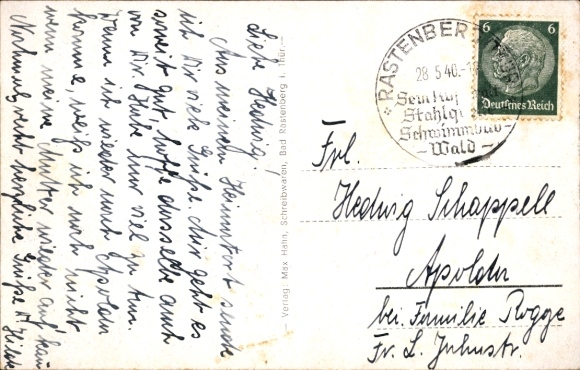 Liebe Hedwig!
Aus meinem Heimatort sende
ich Dir viele Grüße. Mir geht es
soweit gut, hoffe dasselbe auch
von Dir. Habe nur viel zu tun.
Wann ich wieder nach Apolda
komme, weiß ich noch nicht
wenn meine Mutter wieder auf kann
Nochmals recht herzliche Grüße
Verlag: Max Hahn, Schreibwaren, Bad Rastenberg i. Thür.
RASTENBERG
28.5.40.
Stahlqu
Schwimmbad
Wald
6 6
Deutsches Reich
Frl.
Hedwig Schappell
Apolda
bei Familie Rogge
Fr. L. Jahnstr.